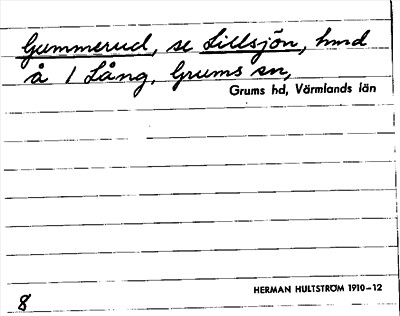 Gummerud, se Lillsjön, hmd
å 1 Lång, Grums sn,
Grums hd, Värmlands län
HERMAN HULTSTRÖM 1910–12
8